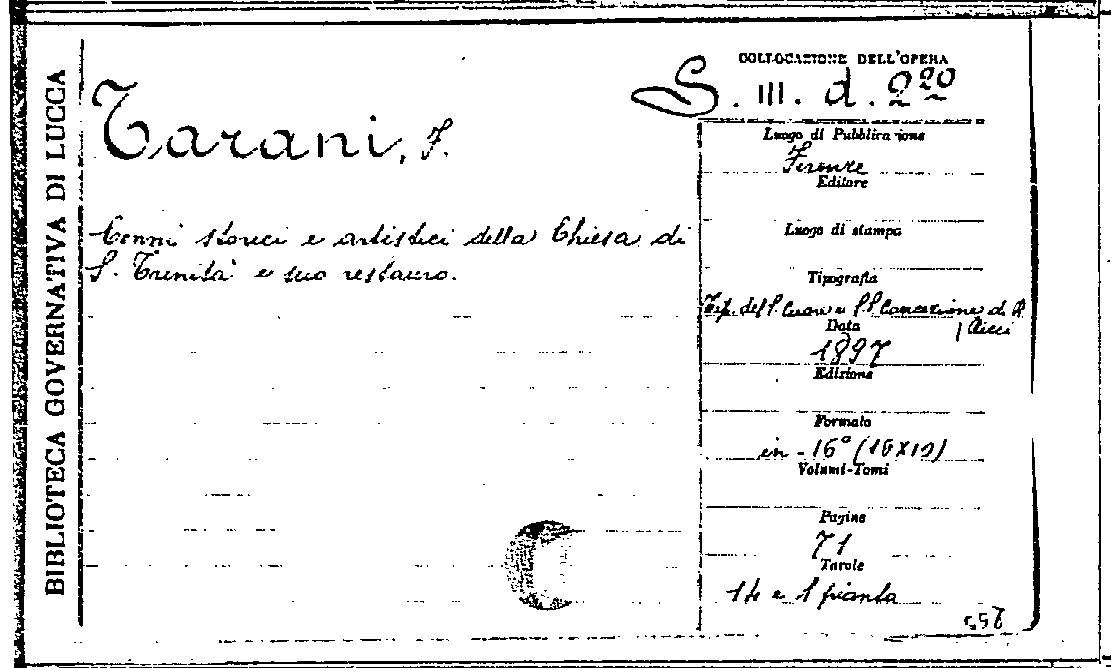 BIBLIOTECA GOVERNATIVA DI LUCCA
Tarani, F.
Cenni storici e artistici della Chiesa di
S. Trinità e suo restauro.
COLLOCAZIONE DELL'OPERA
S. III. d. 220
Luogo di Pubblicazione
Firenze
Editore
Luogo di stampa
Tipografia
Tip. del S. Cuore e S.S. Concezione di A
Ricci
Data
1897
Edizione
Formato
in - 16°
Volumi-Tomi
Pagine
71
Tavole
14 e 1 pianta